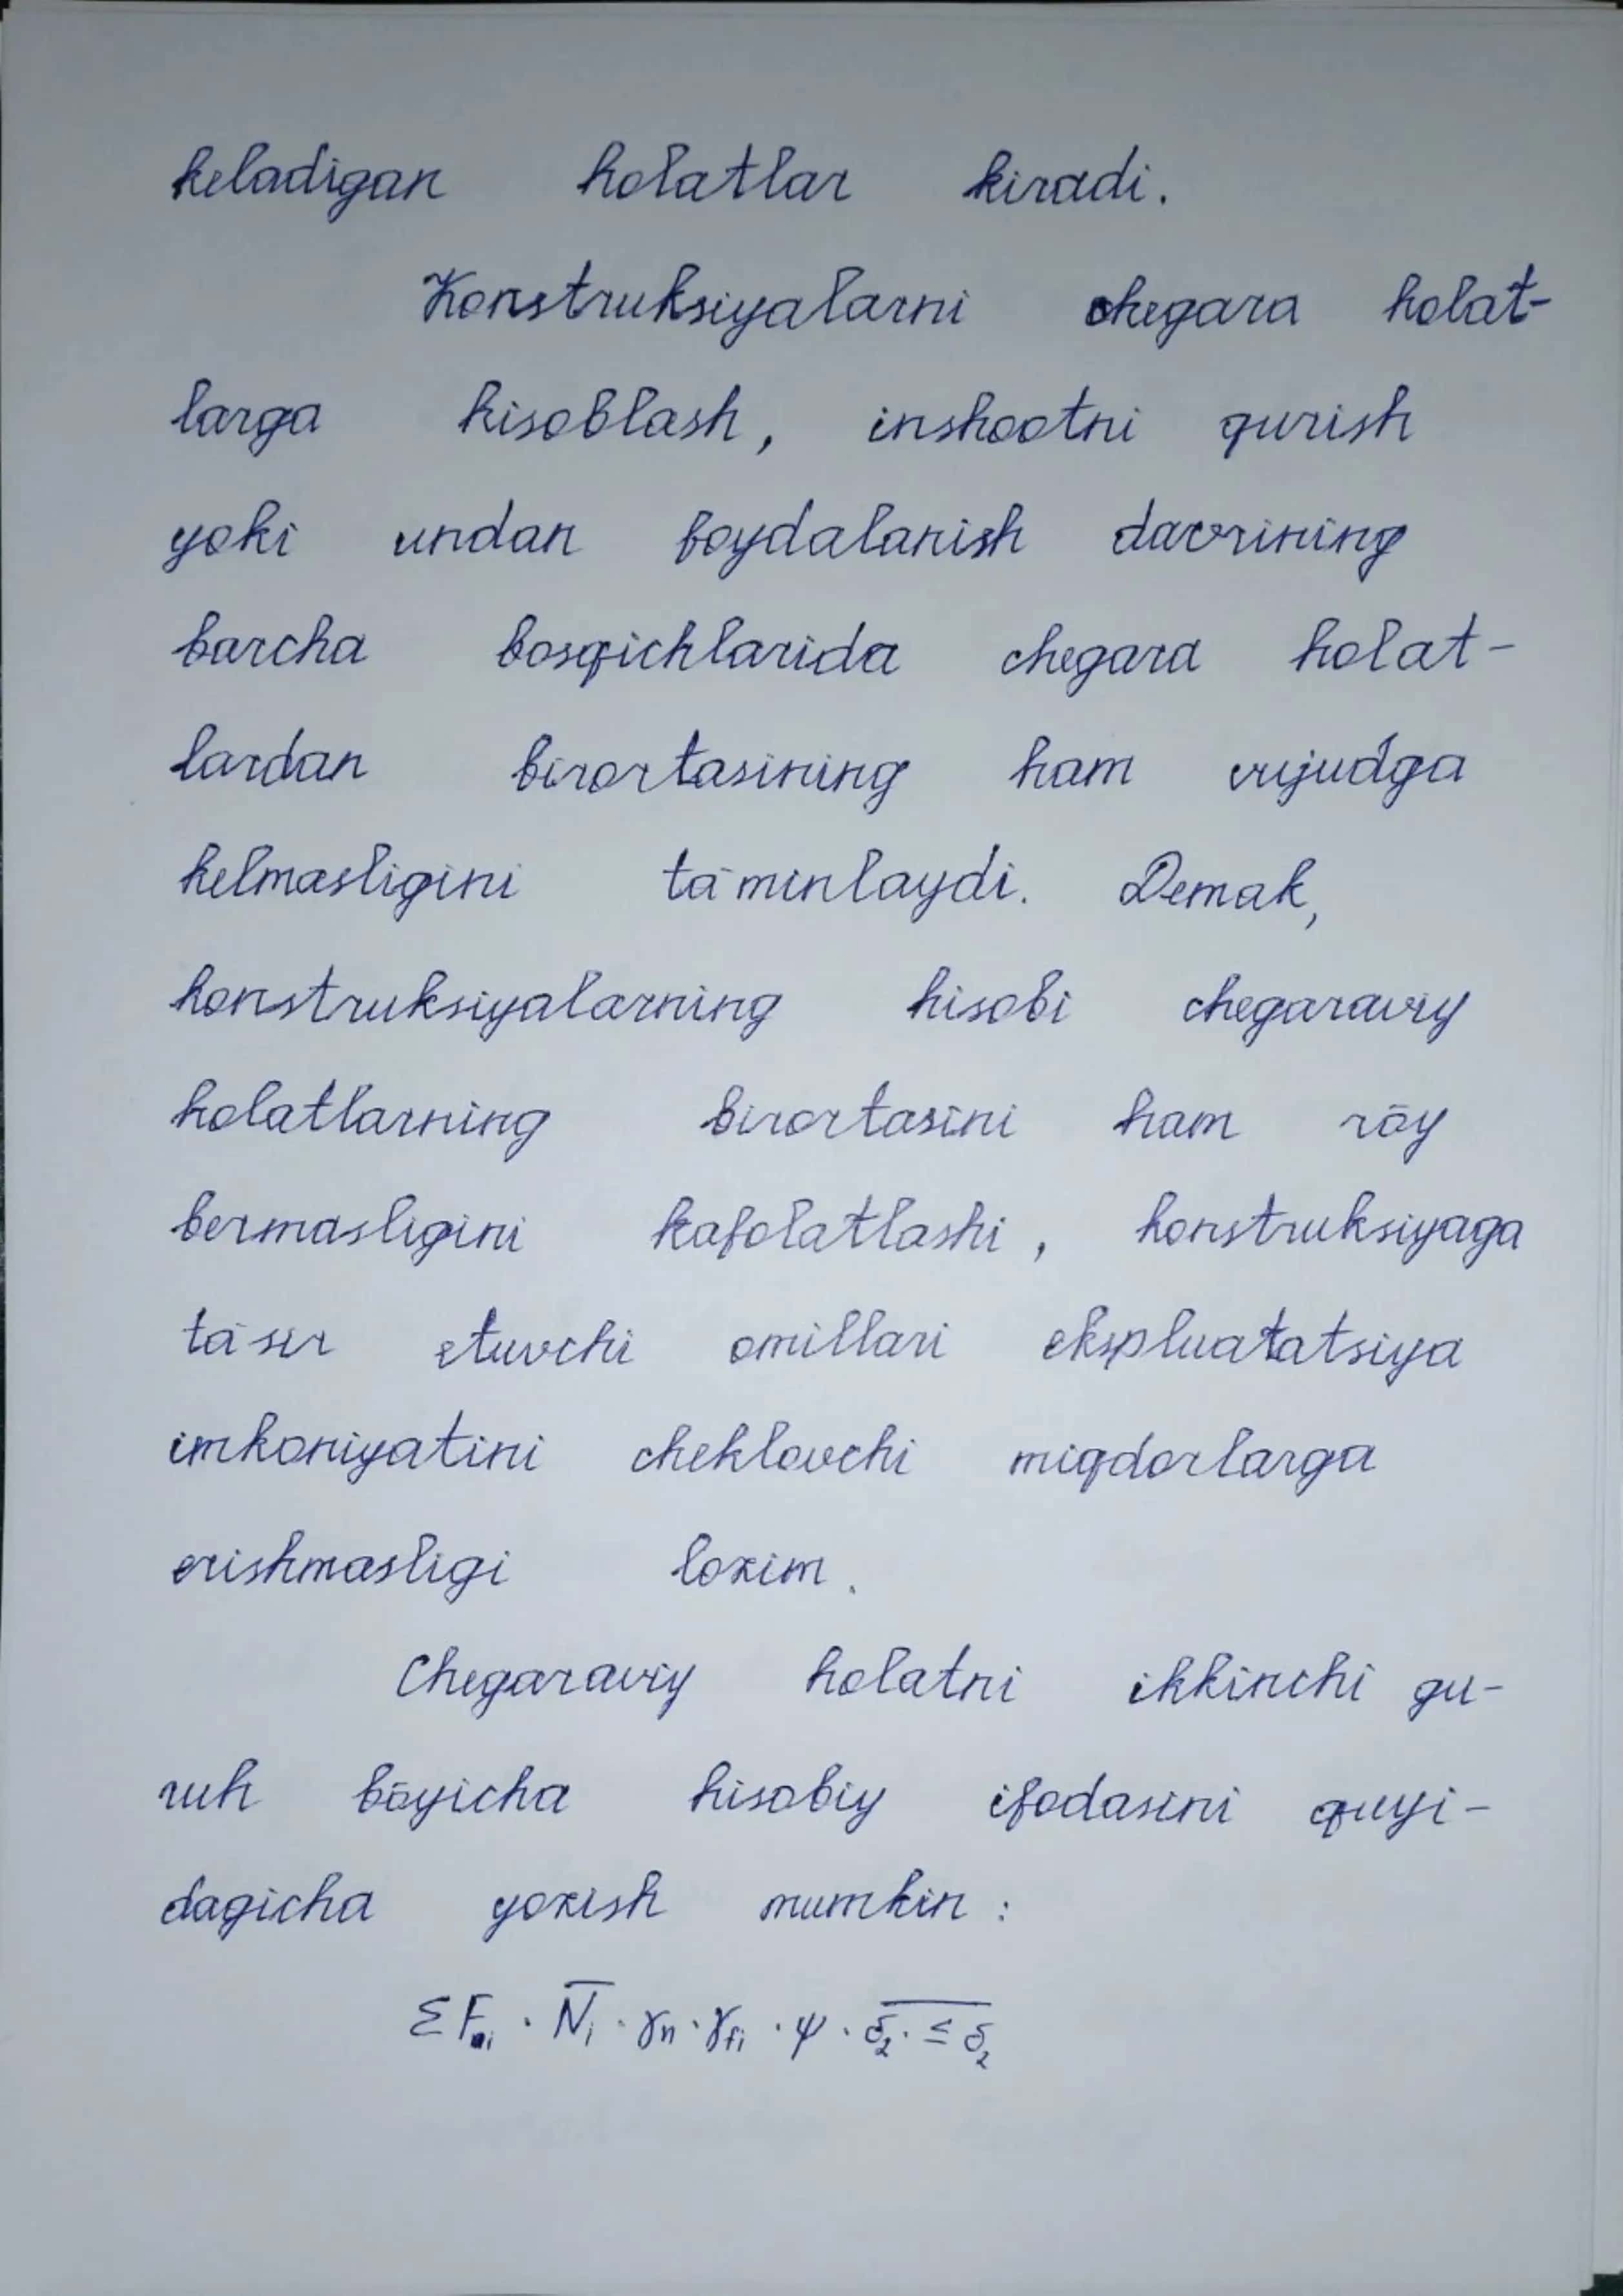 keladigan holatlar kiradi.
Konstruksiyalarni chegara holat-
larga hisoblash, inshootni qurish
yoki undan foydalanish davrining
barcha bosqichlarida chegara holat-
lardan birortasining ham vujudga
kelmasligini ta'minlaydi. Demak,
konstruksiyalarning hisobi chegaraviy
holatlarning birortasini ham rōy
bermasligini kafolatlashi, konstruksiyaga
ta'sir etuvchi omillari ekspluatatsiya
imkoniyatini cheklovchi miqdorlarga
erishmasligi lozim.
Chegaraviy holatni ikkinchi gu-
ruh bōyicha hisobiy ifodasini quyi-
dagicha yozish mumkin:
Σ F · N̅i · γn · γfi · ψ · δ̅2 · ≤ δ2